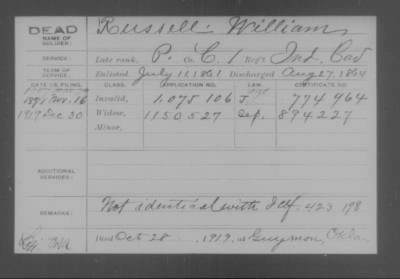 DEAD
NAME OF SOLDIER:
Russell William
SERVICE:
Late rank, P. Co. C. 1 Reg't Ind. Cav
TERM OF SERVICE:
Enlisted July 11 1861 Discharged Aug 27 1864
DATE OF FILING. CLASS. APPLICATION NO. LAW. CERTIFICATE NO.
1891 Nov. 16 Invalid, 1,075 106 J 774 964
1919 Dec 30 Widow, 1150527 Sep. 894227
Minor,
ADDITIONAL SERVICES:
REMARKS:
Not identical with Ctf. 423 198
Died Oct 28 1919, at Guymon, Okla.